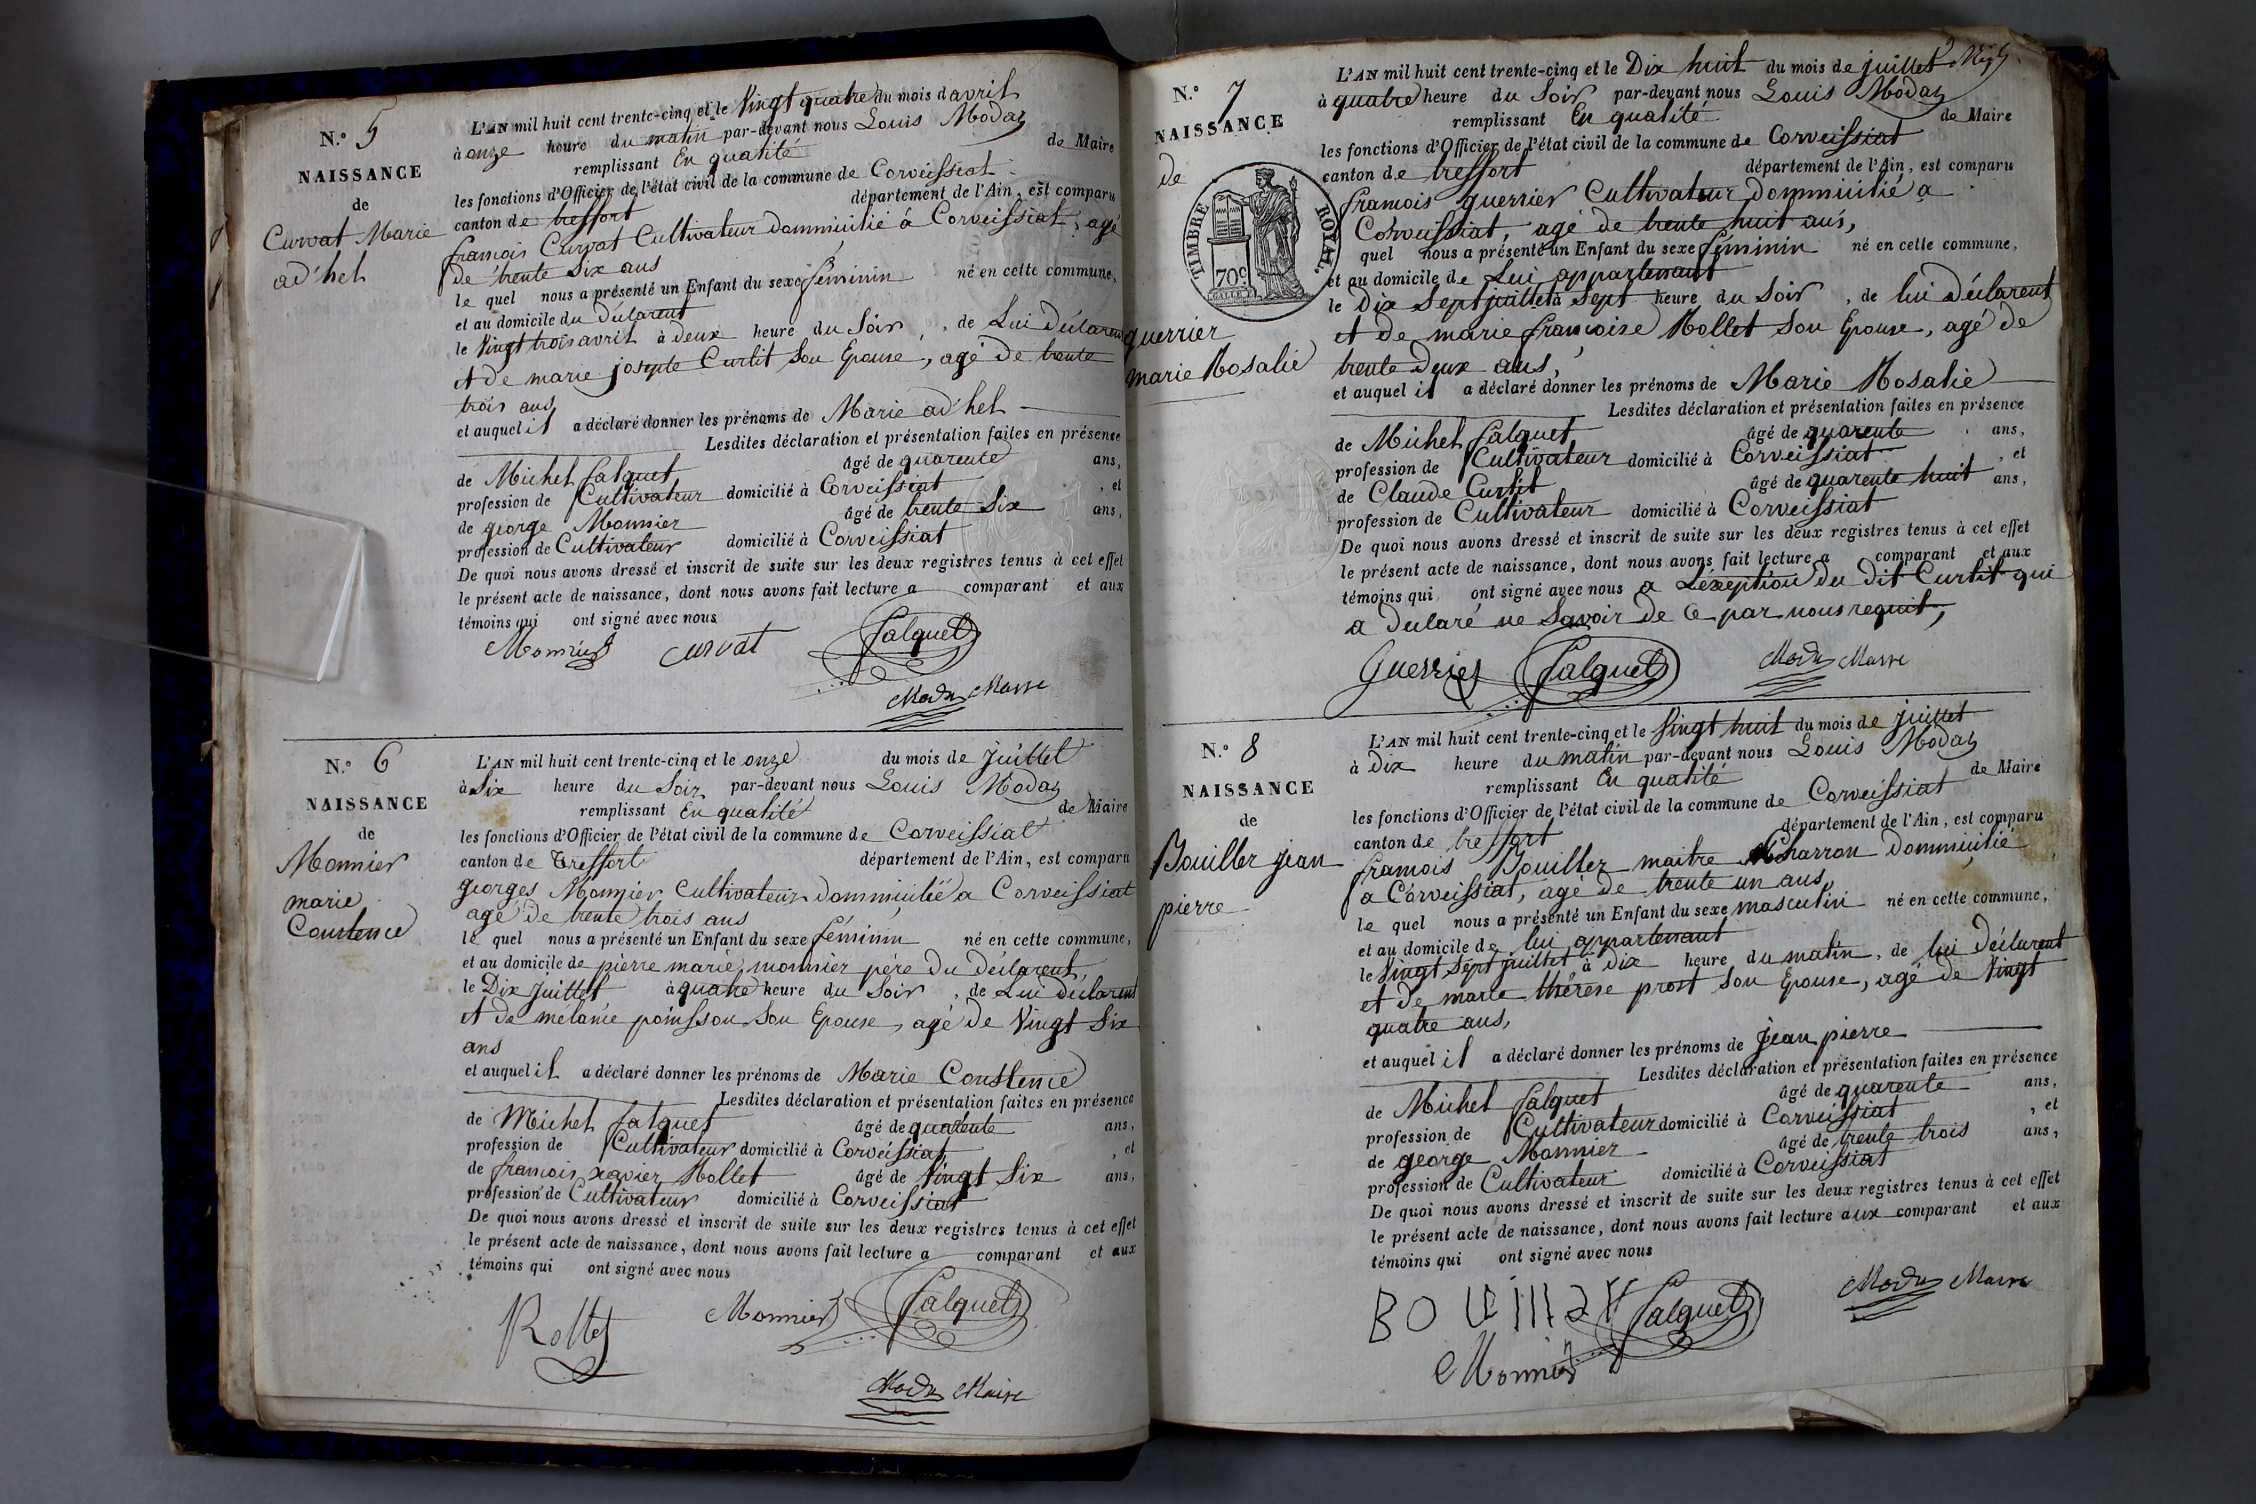 N.° 5
NAISSANCE
de
Curvat Marie
ad'hel
L'AN mil huit cent trente-cinq et le Vingt quatre du mois d avril
à onze heure du matin par-devant nous Louis Modaz
remplissant En qualité de Maire
les fonctions d'Officier de l'état civil de la commune de Corveissiat
canton de treffort département de l'Ain, est comparu
francois Curvat Cultivateur dommicilié á Corveissiat, agé
de trente six ans
le quel nous a présenté un Enfant du sexe féminin né en cette commune,
et au domicile du déclarent
le Vingt trois avril à deux heure du Soir, de Lui déclarent
et de marie josephte Curtit Son Epouse, agé de trente
trois ans
et auquel il a déclaré donner les prénoms de Marie ad'hel
Lesdites déclaration et présentation faites en présence
de Michel falquet âgé de quarente ans,
profession de Cultivateur domicilié à Corveissiat, et
de george Monnier âgé de trente Six ans,
profession de Cultivateur domicilié à Corveissiat
De quoi nous avons dressé et inscrit de suite sur les deux registres tenus à cet effet
le présent acte de naissance, dont nous avons fait lecture a comparant et aux
témoins qui ont signé avec nous
Monnier curvat falquet
Modaz Maire
N.° 6
NAISSANCE
de
Monnier
marie
Constence
L'AN mil huit cent trente-cinq et le onze du mois de Juillet
à Six heure du Soir par-devant nous Louis Modaz
remplissant En qualité de Maire
les fonctions d'Officier de l'état civil de la commune de Corveissiat
canton de Treffort département de l'Ain, est comparu
georges Monnier Cultivateur dommicilié a Corveissiat
agé de trente trois ans
le quel nous a présenté un Enfant du sexe féminin né en cette commune,
et au domicile de pierre marie monnier pére du déclarent,
le Dix Juillet à quatre heure du Soir, de Lui déclarent
et de mélanie poinsson Son Epouse, agé de Vingt Six
ans
et auquel il a déclaré donner les prénoms de Marie Constencie
Lesdites déclaration et présentation faites en présence
de Michel falquet âgé de quarente ans,
profession de Cultivateur domicilié à Corveissiat, et
de francois xavier Rollet âgé de Vingt Six ans,
profession de Cultivateur domicilié à Corveissiat
De quoi nous avons dressé et inscrit de suite sur les deux registres tenus à cet effet
le présent acte de naissance, dont nous avons fait lecture a comparant et aux
témoins qui ont signé avec nous
Rollet Monnier falquet
Modaz Maire
N.° 7
NAISSANCE
de
TIMBRE ROYAL
70c
guerrier
marie Rosalie
L'AN mil huit cent trente-cinq et le Dix huit du mois de juillet
à quatre heure du Soir par-devant nous Louis Modaz
remplissant En qualité de Maire
les fonctions d'Officier de l'état civil de la commune de Corveissiat
canton de treffort département de l'Ain, est comparu
francois guerrier Cultivateur dommicilié a
Corveissiat, agé de trente huit ans,
quel nous a présenté un Enfant du sexe féminin né en cette commune,
et au domicile de Lui appartenant
le Dix Sept juillet à Sept heure du Soir, de lui déclarent
et de marie francoise Rollet Son Epouse, agé de
trente Deux ans,
et auquel il a déclaré donner les prénoms de Marie Rosalie
Lesdites déclaration et présentation faites en présence
de Michel falquet âgé de quarente ans,
profession de Cultivateur domicilié à Corveissiat, et
de Claude Curtit âgé de quarente huit ans,
profession de Cultivateur domicilié à Corveissiat
De quoi nous avons dressé et inscrit de suite sur les deux registres tenus à cet effet
le présent acte de naissance, dont nous avons fait lecture a comparant et aux
témoins qui ont signé avec nous a Léxeption du dit Curtit qui
a declaré ne Savoir de Ce par nous requit,
Guerrier falquet Modaz Maire
N.° 8
NAISSANCE
de
Bouiller jean
pierre
L'AN mil huit cent trente-cinq et le Vingt huit du mois de juillet
à Dix heure du matin par-devant nous Louis Modaz
remplissant En qualité de Maire
les fonctions d'Officier de l'état civil de la commune de Corveissiat
canton de treffort département de l'Ain, est comparu
francois Bouiller maitre Charron dommicilié
a Corveissiat, agé de trente un ans,
le quel nous a présenté un Enfant du sexe masculin né en cette commune,
et au domicile de lui appartenant
le Vingt Sept juillet à Dix heure du matin, de lui déclarent
et de marie thérèse prost Son Epouse, agé de Vingt
quatre ans,
et auquel il a déclaré donner les prénoms de jean pierre
Lesdites déclaration et présentation faites en présence
de Michel falquet âgé de quarente ans,
profession de Cultivateur domicilié à Corveissiat, et
de george Monnier âgé de trente trois ans,
profession de Cultivateur domicilié à Corveissiat
De quoi nous avons dressé et inscrit de suite sur les deux registres tenus à cet effet
le présent acte de naissance, dont nous avons fait lecture aux comparant et aux
témoins qui ont signé avec nous
BOUiller falquet Modaz Maire
Monnier